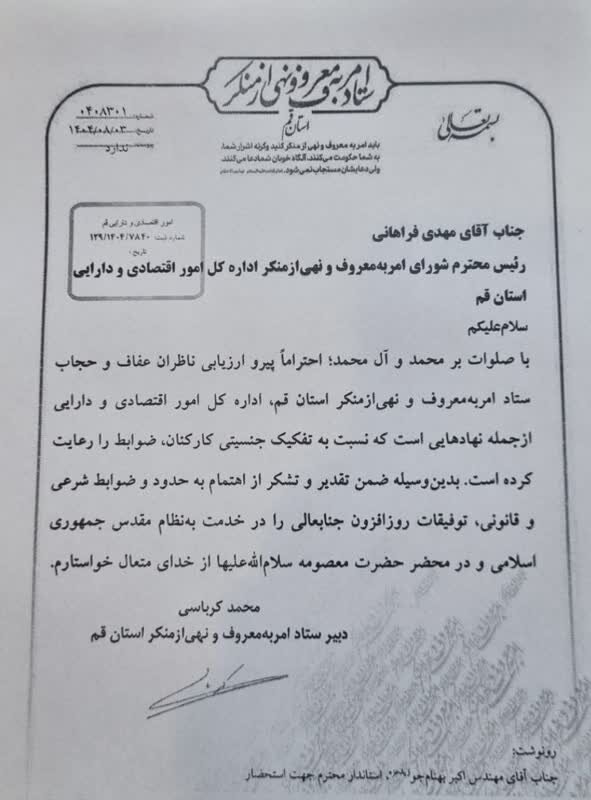 ستاد امر به معروف و نهی از منکر
استان قم
باید امر به معروف و نهی از منکر کنید وگرنه اشرار شما،
به شما حکومت می‌کنند، آنگاه خوبان شما دعا می‌کنند،
ولی دعایشان مستجاب نمی‌شود.
بسمه تعالی
شماره: ۰۴۰۸۳۰۱
تاریخ: ۱۴۰۴/۰۸/۰۳
پیوست: ندارد
امور اقتصادی و دارایی قم
شماره ثبت: ۱۳۹/۱۴۰۴/۷۸۴۰
تاریخ:
جناب آقای مهدی فراهانی
رئیس محترم شورای امربه‌معروف و نهی‌ازمنکر اداره کل امور اقتصادی و دارایی
استان قم
سلام‌علیکم
با صلوات بر محمد و آل محمد؛ احتراماً پیرو ارزیابی ناظران عفاف و حجاب
ستاد امربه‌معروف و نهی‌ازمنکر استان قم، اداره کل امور اقتصادی و دارایی
ازجمله نهادهایی است که نسبت به تفکیک جنسیتی کارکنان، ضوابط را رعایت
کرده است. بدین‌وسیله ضمن تقدیر و تشکر از اهتمام به حدود و ضوابط شرعی
و قانونی، توفیقات روزافزون جنابعالی را در خدمت به‌نظام مقدس جمهوری
اسلامی و در محضر حضرت معصومه سلام‌الله‌علیها از خدای متعال خواستارم.
محمد کرباسی
دبیر ستاد امربه‌معروف و نهی‌ازمنکر استان قم
رونوشت:
جناب آقای مهندس اکبر بهنام‌جو، استاندار محترم جهت استحضار